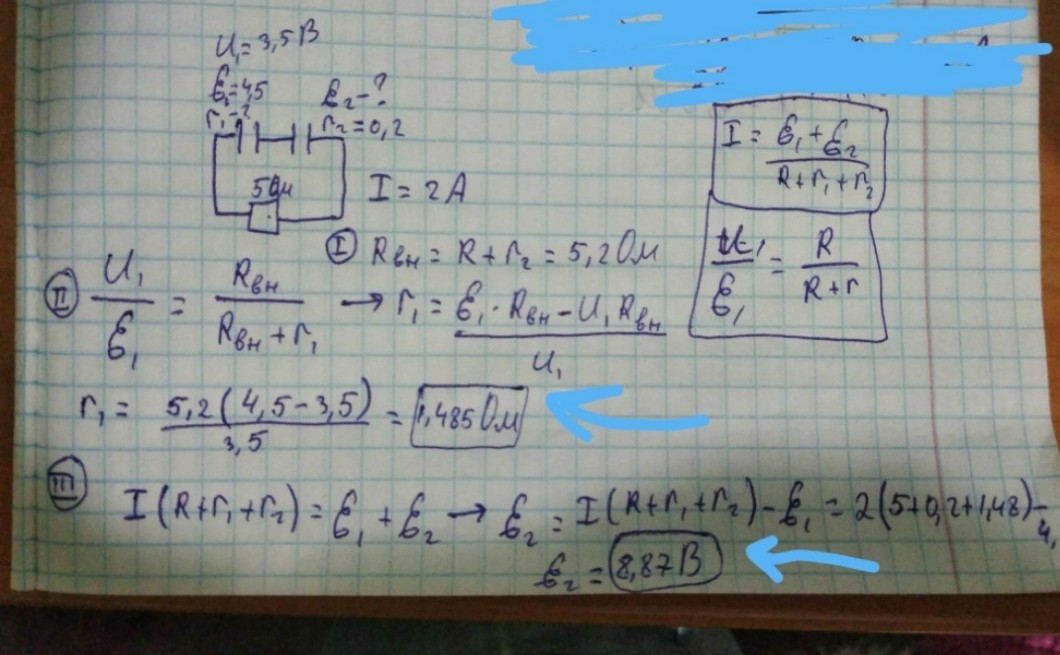 U₁ = 3,5 В
ℰ₁ = 4,5 ℰ₂ - ?
r₁ - ? r₂ = 0,2
5 Ом
I = 2 А
I = (ℰ₁ + ℰ₂) / (R + r₁ + r₂)
U₁ / ℰ₁ = R / (R + r)
I Rвн = R + r₂ = 5,2 Ом
II U₁ / ℰ₁ = Rвн / (Rвн + r₁) → r₁ = (ℰ₁ · Rвн - U₁ Rвн) / U₁
r₁ = 5,2 (4,5 - 3,5) / 3,5 = 1,485 Ом
III
I (R + r₁ + r₂) = ℰ₁ + ℰ₂ → ℰ₂ = I (R + r₁ + r₂) - ℰ₁ = 2 (5 + 0,2 + 1,48) - 4,
ℰ₂ = 8,87 В